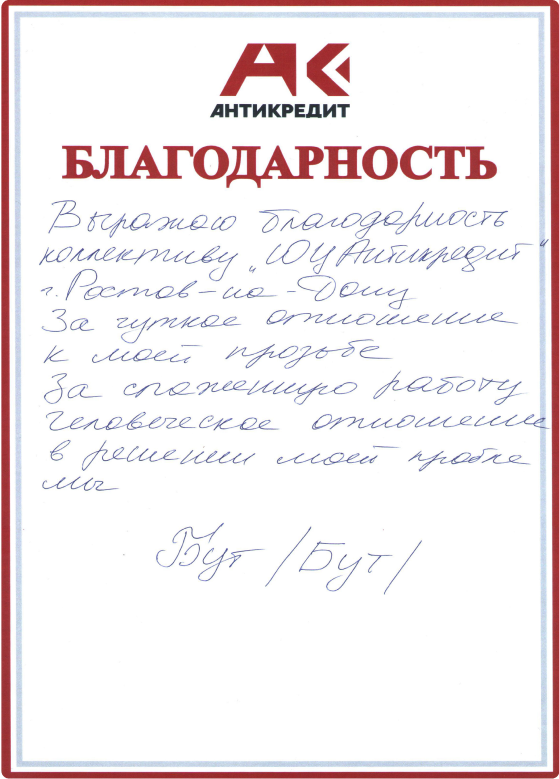 АК
АНТИКРЕДИТ
БЛАГОДАРНОСТЬ
Выражаю благодарность
коллективу „ЮЦ Антикредит"
г. Ростов-на-Дону
За чуткое отношение
к моей прозьбе
За слаженную работу
Человеческое отношение
в решении моей пробле
мы
Бут /Бут/